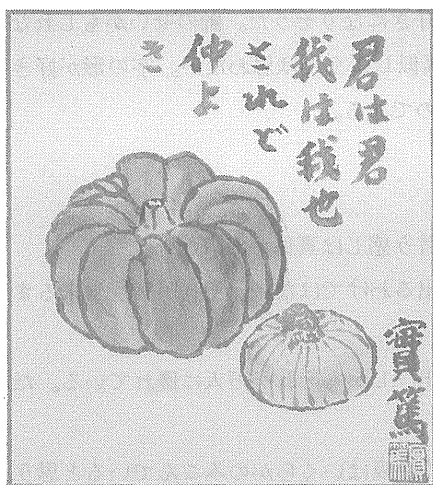 君は君
我は我也
されど
仲よ
き
實篤